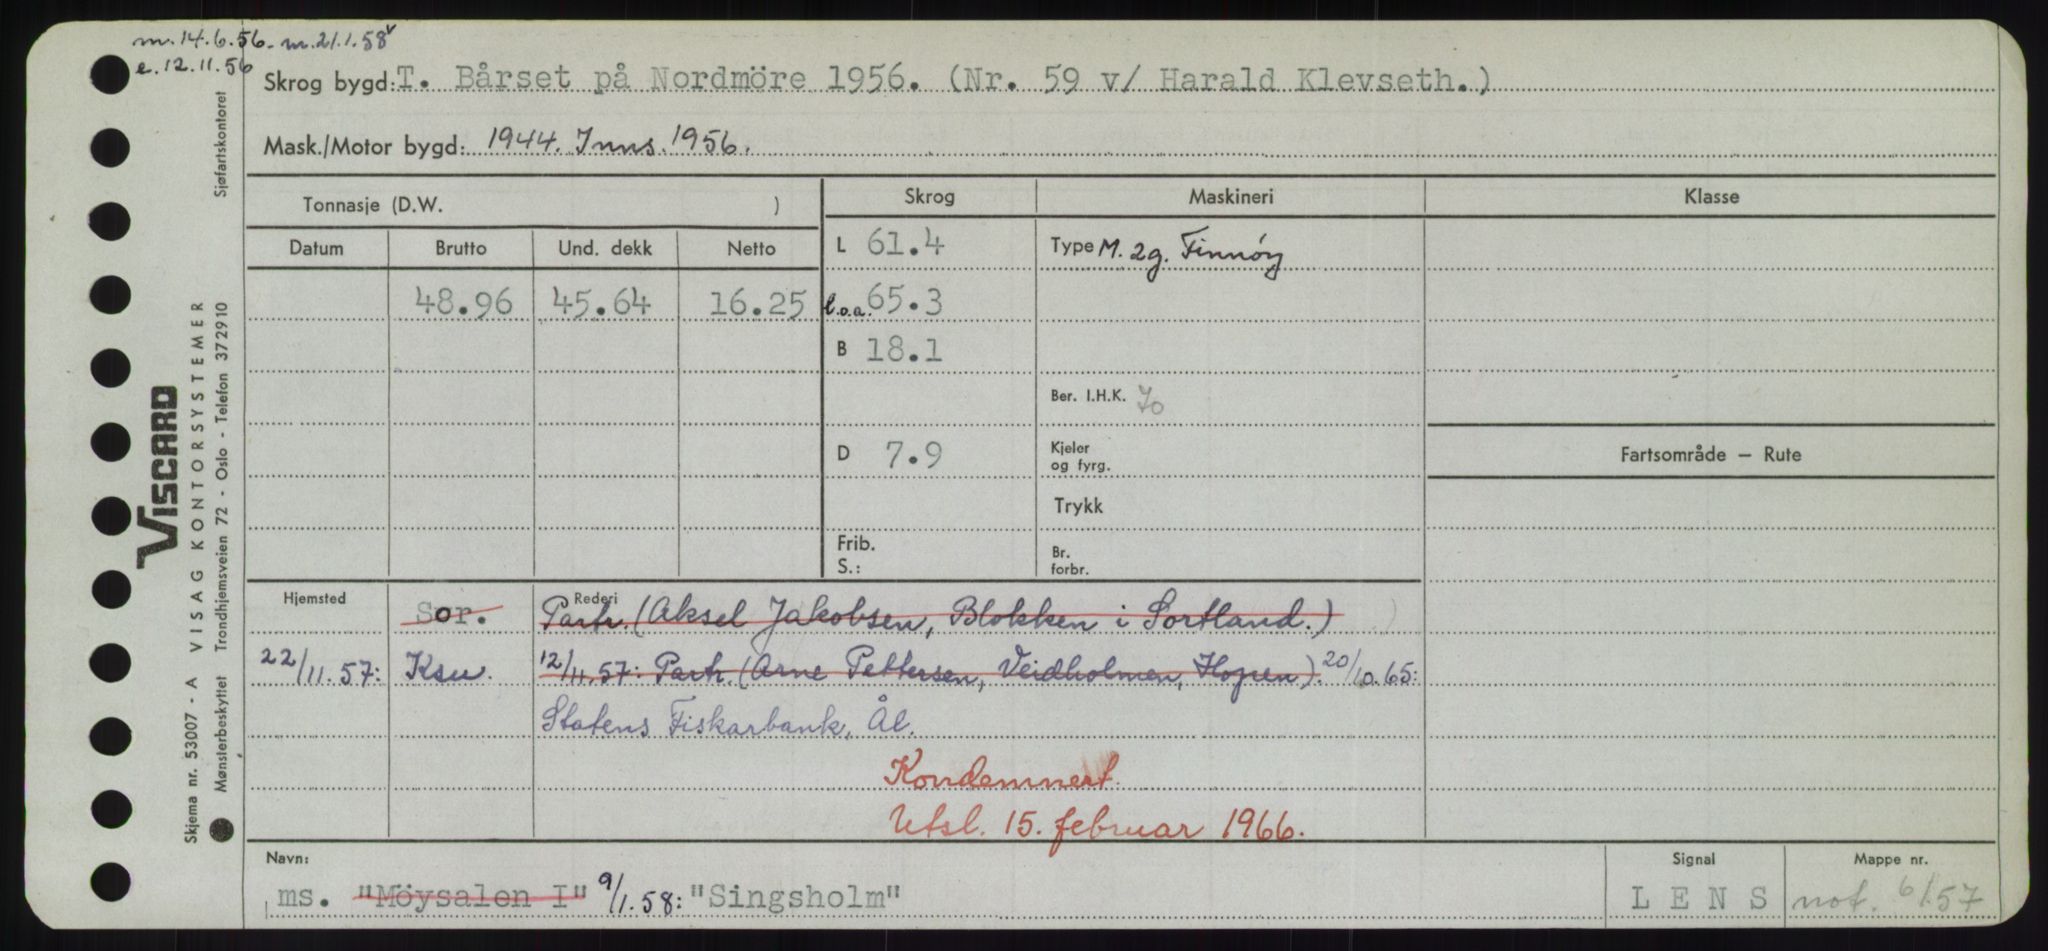 m. 14.6.56. m. 21.1.58
e. 12.11.56
Skrog bygd: T. Bårset på Nordmöre 1956. (Nr. 59 v/ Harald Klevseth.)
Mask./Motor bygd: 1944. Inns. 1956.
Tonnasje (D.W. )
Skrog Maskineri Klasse
Datum Brutto Und. dekk Netto
L 61.4 Type M. 2g. Finnöy
48.96 45.64 16.25 l.o.a. 65.3
B 18.1
Ber. I.H.K. 70
D 7.9 Kjeler og fyrg.
Fartsområde — Rute
Trykk
Frib.
S.:
Br. forbr.
Hjemsted Rederi
Sor. Partr. (Aksel Jakobsen, Blokken i Sortland.)
22/11.57: Ksu. 12/11.57: Partr. (Arne Pettersen, Veidholmen, Hopen). 20/10.65:
Statens Fiskarbank, Ål.
Kondemnert.
Utsl. 15. februar 1966.
Navn: Signal Mappe nr.
ms. "Möysalen I" 9/1.58: "Singsholm" LENS not. 6/1.57
VISCARD
Skjema nr. 53007 - A VISAG KONTORSYSTEMER
Mønsterbeskyttet Trondhjemsveien 72 - Oslo - Telefon 372910
Sjøfartskontoret